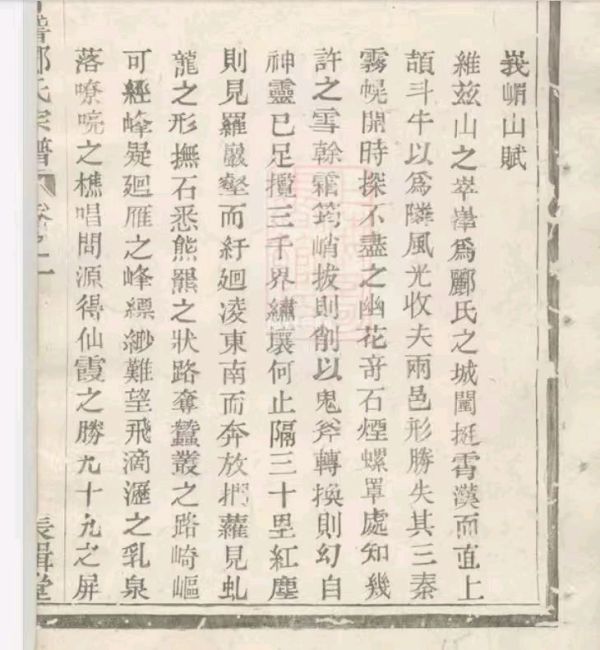 峩嵋山賦
維茲山之崒嵂爲酈氏之城闉挺霄漢而直上
頡斗牛以爲隣風光收夫兩邑形勝失其三秦
霧幌開時探不盡之幽花竒石煙螺罩處知幾
許之雪榦霜筠峭拔則削以鬼斧轉換則幻自
神靈已足攬三千界繡壤何止隔三十里紅塵
則見羅巖壑而紆廻凌東南而奔放捫蘿見虬
龍之形撫石悉熊羆之狀路奪蠶叢之路崎嶇
可經峰疑廻雁之峰縹緲難望飛滴瀝之乳泉
落嘹喨之樵唱問源得仙霞之勝九十九之屏
氏宗譜 卷之一 長輯堂